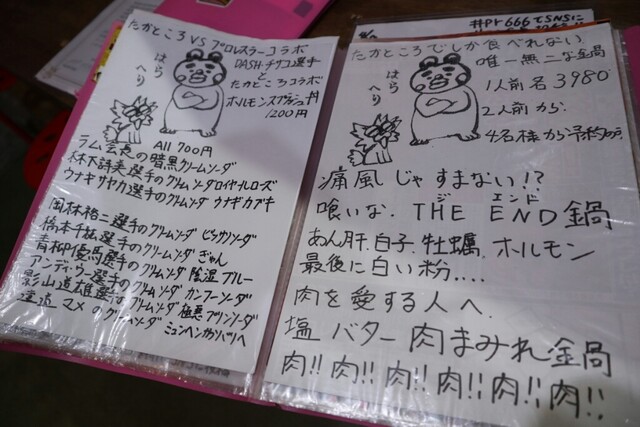 たかところ VS プロレスラーコラボ
はら
へり
DASH・チサコ選手
と
たかところコラボ
ホルモンスプラッシュ丼
1200円
All 700円
ラム会長の暗黒クリームソーダ
木下詩美選手のクリームソーダロイヤルローズ
ウナギサヤカ選手のクリームソーダ ウナギカブキ
岡林裕二選手のクリームソーダ ピッサリソーダ
橋本千紘選手のクリームソーダ ぎゃん
青柳優馬選手のクリームソーダ 陰湿ブルー
アンディ・ウー選手のクリームソーダ カンフーソーダ
影山道雄選手のクリームソーダ 極悪プリンソーダ
渡辺 マメのクリームソーダ ミュンヘンカツベリへ
#Pr666でSNSに
たかところでしか食べれない
唯一無二な鍋
はら
へり
1人前 名 3980
2人前から
4名様から予約の
痛風じゃすまない!?
喰いな. THE END鍋
ジ エンド
あん肝、白子、牡蠣、ホルモン
最後に白い粉....
肉を愛する人へ.
塩バター肉まみれ鍋
肉!! 肉!! 肉!! 肉!! 肉!! 肉!!